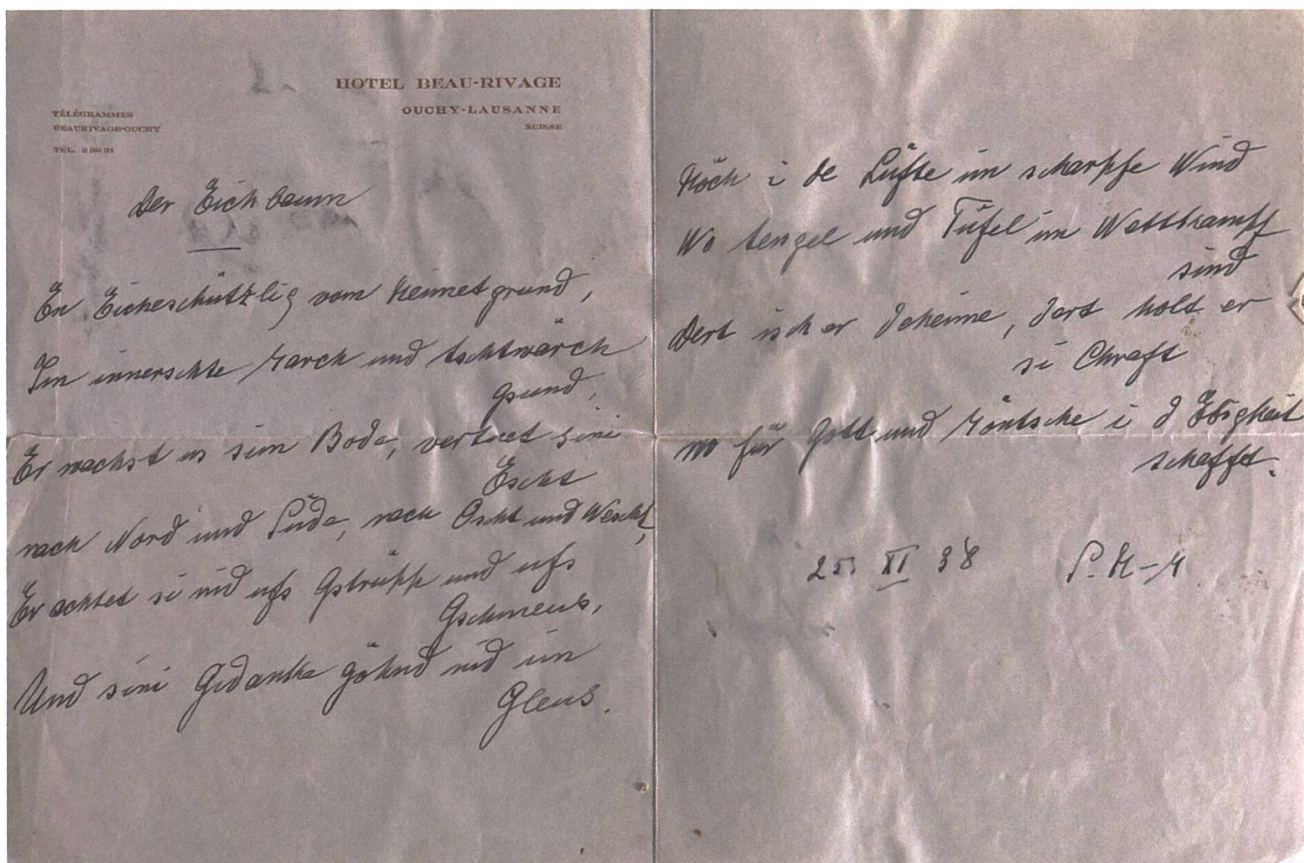 HOTEL BEAU-RIVAGE
OUCHY-LAUSANNE
SUISSE
TÉLÉGRAMMES
BEAURIVAGE-OUCHY
TÉL.
Der Eichbaum
En Eicheschützlig vom Heimetgrund,
Im innerschte March und
gsund,
Er wachst us sim Bode, sini
Escht
nach Nord und Süde, nach Oscht und Wescht,
Er achtet si nid ufs Gstrüpp und ufs
Und sini Gedanke göhnd nid im
Gleus.
Höch i de Lüfte im scharpfe Wind
Wo und Tüfel im Wettkampf
sind
Dert isch er deheime, dert holt er
si Chraft
wo für Gott und Möntsche i d Ebigkeit
schaffet.
25. XI 38 P. H-M